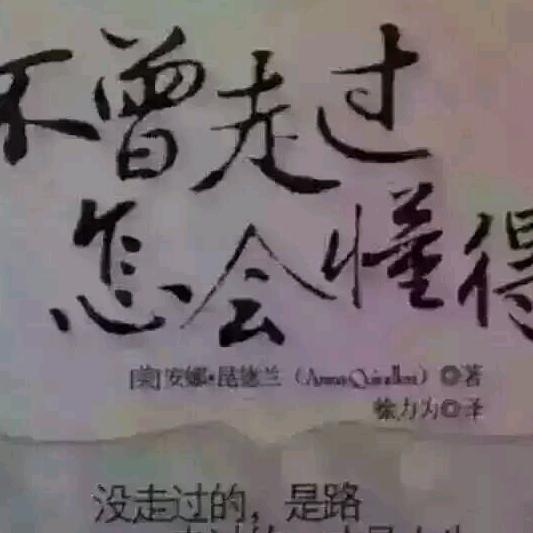 不曾走过
怎会懂得
[美]安娜·昆德兰（Anna Quindlen）◎著
徐力为◎译
没走过的，是路